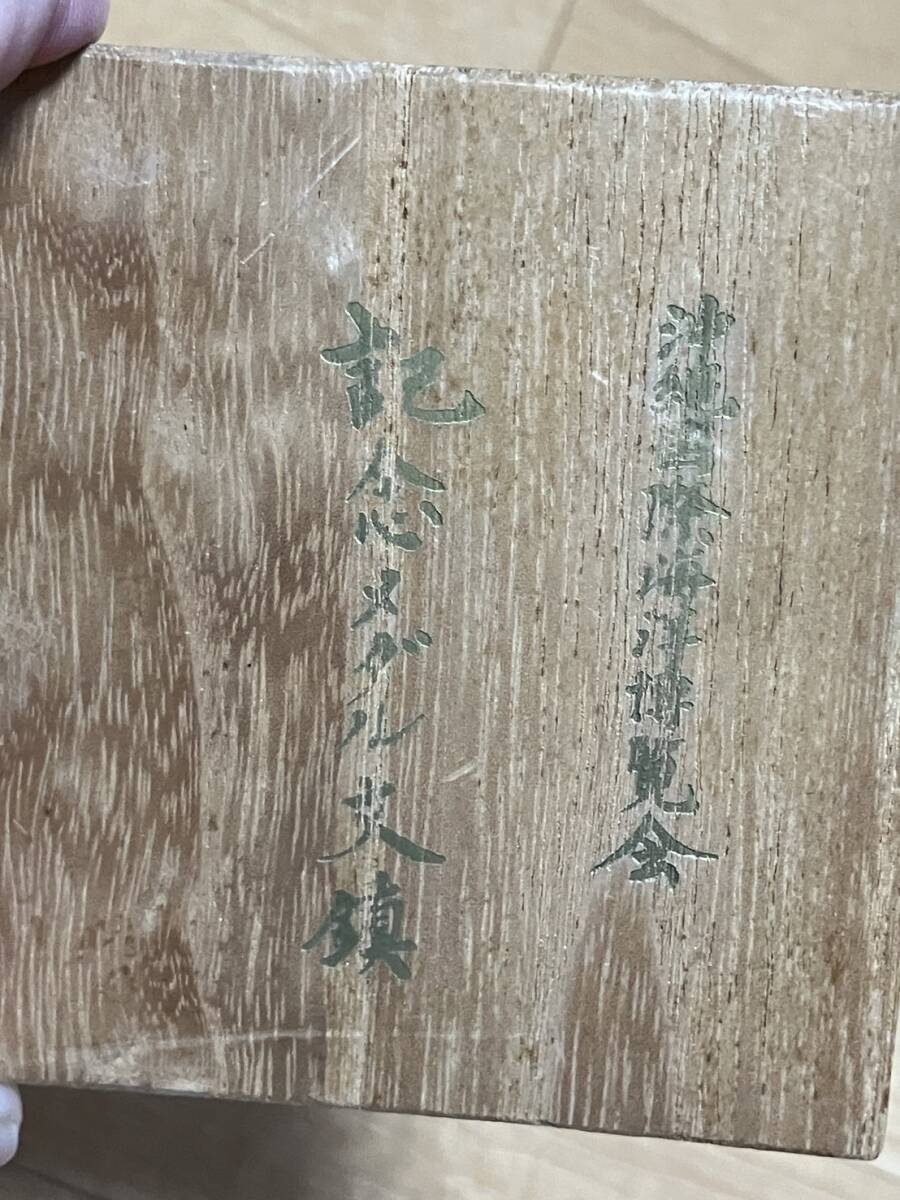 沖縄国際海洋博覧会
記念メダル文鎮